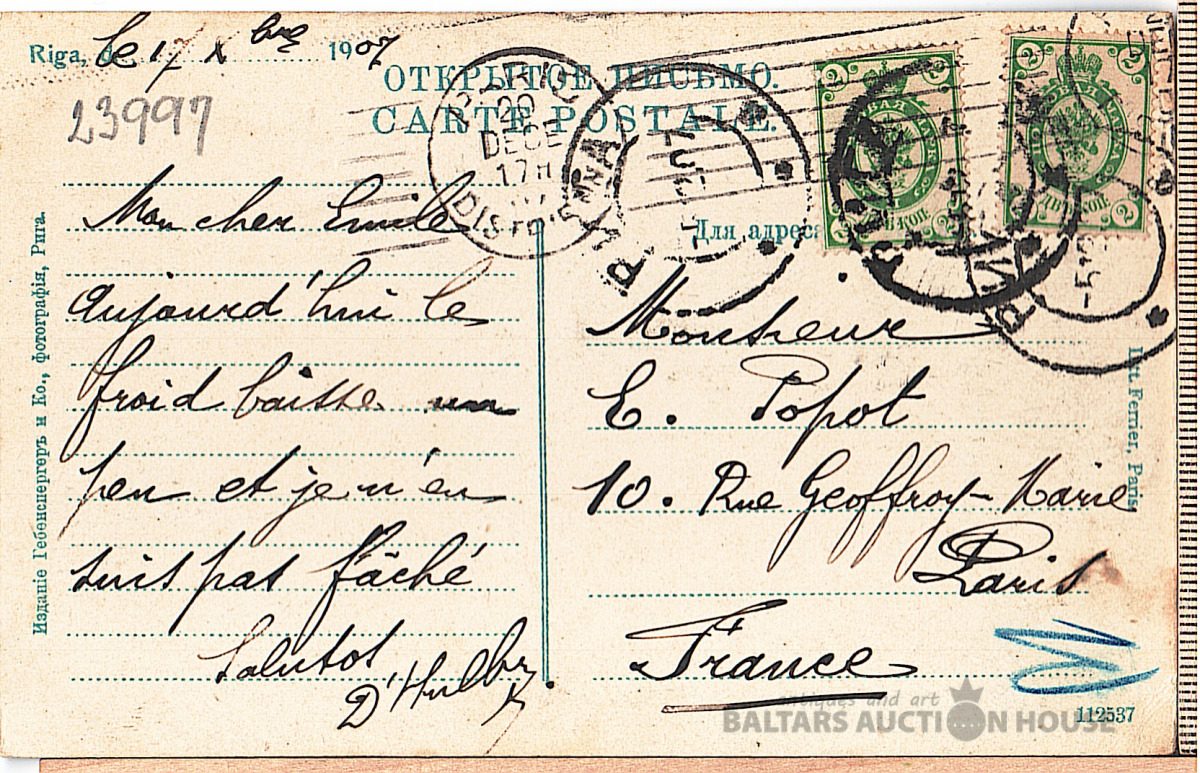 Riga, d. le 17 Xbre 1907
23997
ОТКРЫТОЕ ПИСЬМО.
CARTE POSTALE.
PARIS
20
DECE
17H
DISTRIB
RIGA
Для адреса
ДВѢ КОП.
2
Mon cher Emile
Aujourd'hui le
froid baisse un
peu et je n'en
suis pas fâché
Salutot
Monsieur
E. Popot
10. Rue Geoffroy-Marie
Paris
France
Изданіе Гебенспергеръ и Ко., фотографія, Рига.
Ferrier, Paris.
112537
antiques and art
BALTARS AUCTION HOUSE